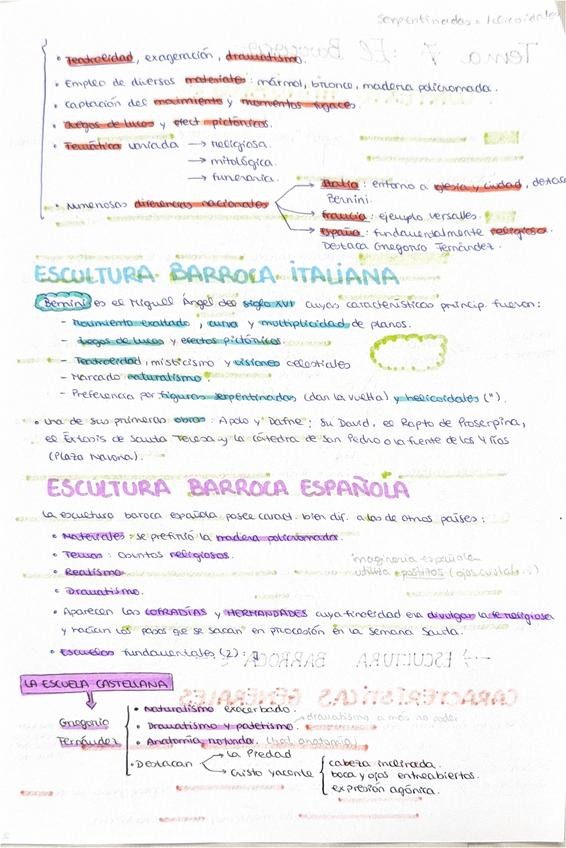 serpentinadas = helicoidales
• Teatralidad, exageración, dramatismo.
• Empleo de diversos materiales: mármol, bronce, madera policromada.
• Captación del movimiento y momentos fugaces.
• Juegos de luces y efect pictóricos.
• Temática variada → religiosa.
→ mitológica.
→ funeraria.
• Numerosas diferencias nacionales → Italia: entorno a iglesia y ciudad, destaca
Bernini.
→ Francia: ejemplo versalles.
→ España: fundamentalmente religiosa.
Destaca Gregorio Fernández.
ESCULTURA BARROCA ITALIANA
Bernini es el Miguel Ángel del siglo XVI cuyas características princip. fueron:
- Movimiento exaltado, curva y multiplicidad de planos.
- Juegos de luces y efectos pictóricos
- Teatralidad, misticismo y visiones celestiales
- Marcado naturalismo.
- Preferencia por figuras serpentinadas (dan la vuelta) y helicoidales (").
• Una de sus primeras obras: Apolo y Dafne; su David, el Rapto de Proserpina,
el Éxtasis de Santa Teresa y la Cátedra de San Pedro o la fuente de los 4 ríos
(Plaza Navona).
ESCULTURA BARROCA ESPAÑOLA
La escultura baroca española posee caract. bien dif. a las de otros países:
• Materiales: se prefirió la madera policromada.
• Temas: asuntos religiosos.
• Realismo
• Dramatismo.
imaginería española
utiliza postizos (ojos cristal...)
• Aparecen las COFRADÍAS y HERMANDADES cuya finalidad era divulgar la fe religiosa
y hacían los pasos que se sacan en procesión en la Semana Santa.
• Escuelas fundamentales (2):
LA ESCUELA CASTELLANA
Gregorio
Fernández
• Naturalismo exacerbado.
• Dramatismo y patetismo. dramatismo a más no poder
• Anatomía rotunda. (real anatomía)
• Destacan → La Piedad
→ Cristo yacente
cabeza inclinada.
boca y ojos entreabiertos.
expresión agónica.